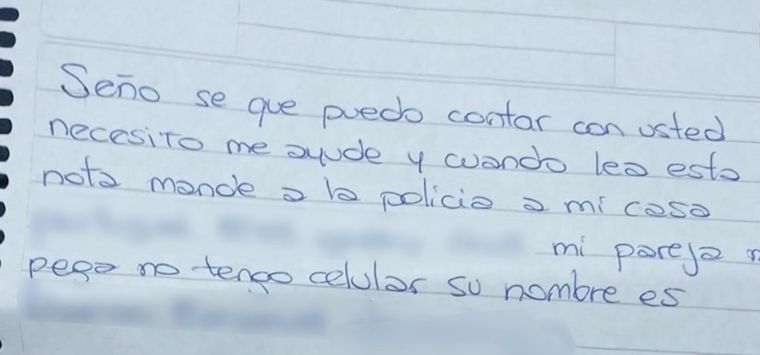 Seño se que puedo contar con usted
necesito me ayude y cuando lea esta
nota mande a la policia a mi casa
mi pareja
pega no tengo celular su nombre es